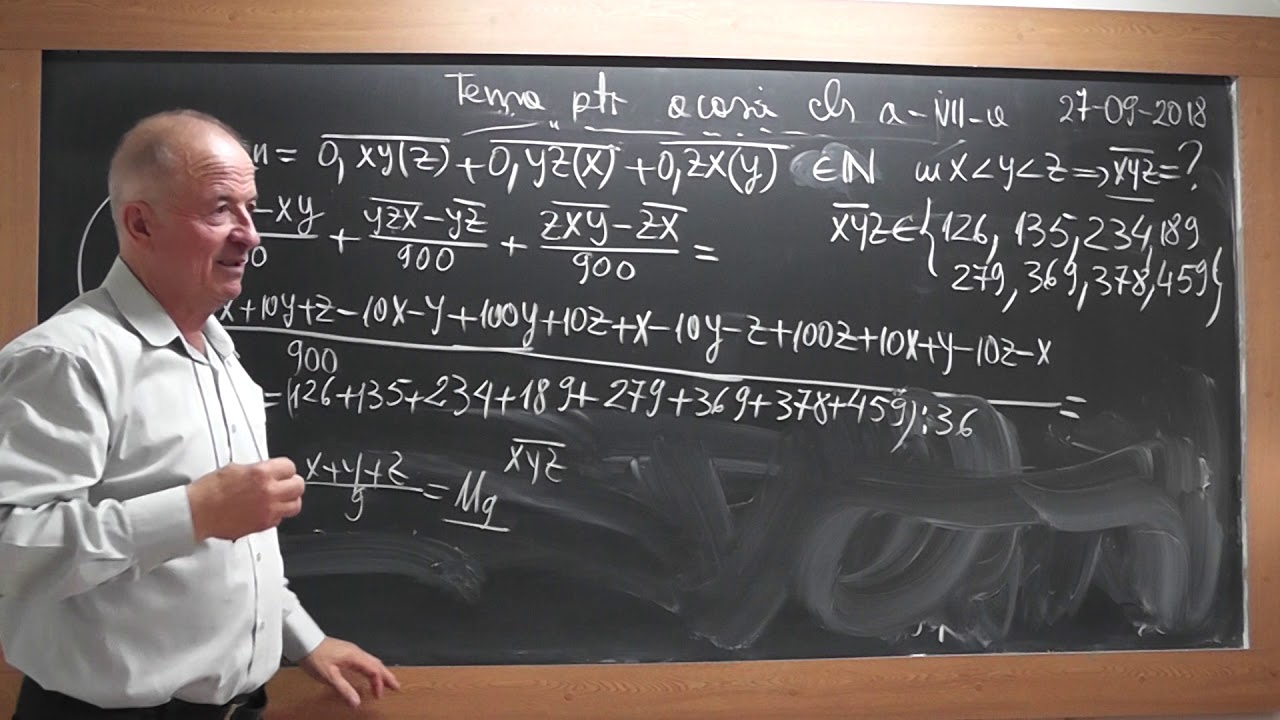 Tema ptr acasă cls a-VII-a 27-09-2018
n = 0,xy(z) + 0,yz(x) + 0,zx(y) ∈ ℕ x<y<z ⟹ xyz = ?
-xy/00 + (yzx-yz)/900 + (zxy-zx)/900 =
xyz ∈ {126, 135, 234, 189
279, 369, 378, 459}
x+10y+z-10x-y+100y+10z+x-10y-z+100z+10x+y-10z-x =
900
=(126+135+234+189+279+369+378+459):36
(x+y+z)/9 = M9 xyz